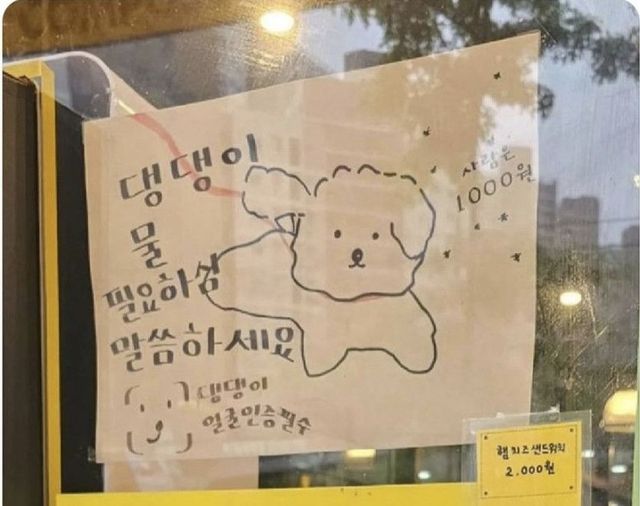 댕댕이
물
필요하심
말씀하세요
댕댕이
얼굴인증필수
사람은
1000원
햄치즈샌드위치
2.000원